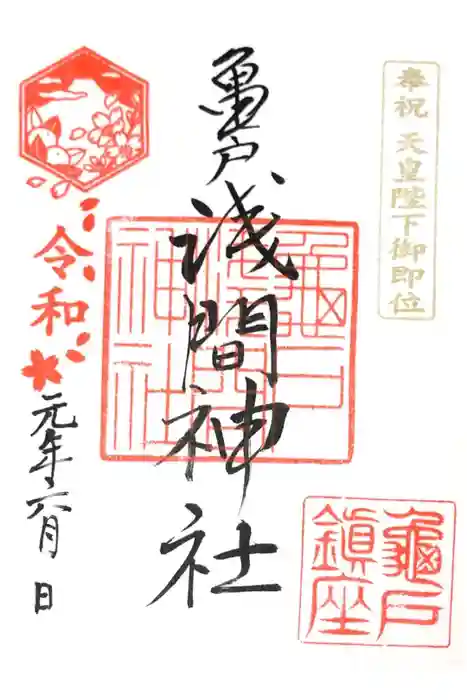 奉祝 天皇陛下御即位
亀戸
浅間神社
龜戸
浅間
神社
令和
元年六月 日
龜戸
鎮座